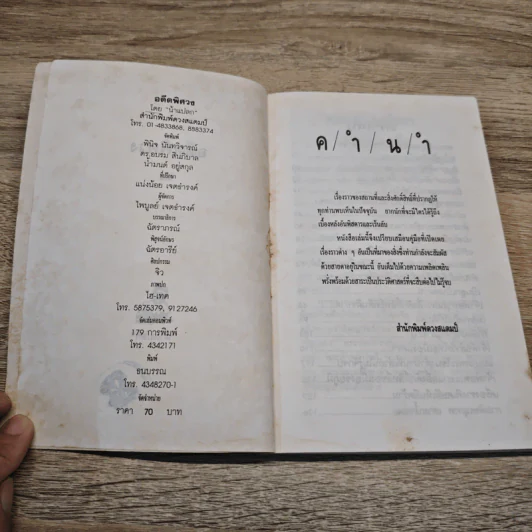 อดีตพิศวง
โดย "น้าแปลก"
สำนักพิมพ์ดวงสแตมป์
โทร. 01-4833868, 8883374
จัดพิมพ์
พินิจ นันทวิจารณ์
ดร.อบรม สินภิบาล
น้ำมนต์ อยู่สกุล
ที่ปรึกษา
แน่งน้อย เจตธำรงค์
ผู้จัดการ
ไพบูลย์ เจตธำรงค์
บรรณาธิการ
ฉัตราภรณ์
พิสูจน์อักษร
ฉัตรอารีย์
ศิลปกรรม
จิ๋ว
ภาพปก
ไฮ-เทค
โทร. 5875379, 9127246
จัดเล่มก่อนพิมพ์
179 การพิมพ์
โทร. 4342171
พิมพ์
ธนบรรณ
โทร. 4348270-1
จัดจำหน่าย
ราคา 70 บาท
ค/ำ/น/ำ
เรื่องราวของสถานที่และสิ่งศักดิ์สิทธิ์ที่ปรากฏให้
ทุกท่านพบเห็นในปัจจุบัน ยากนักที่จะมีใครได้รู้ถึง
เบื้องหลังอันพิสดารและเร้นลับ
หนังสือเล่มนี้จึงเปรียบเสมือนคู่มือที่เปิดเผย
เรื่องราวต่าง ๆ อันเป็นที่มาของสิ่งซึ่งท่านกำลังจะสัมผัส
ด้วยสายตาอยู่ในขณะนี้ อันเต็มไปด้วยความเพลิดเพลิน
พรั่งพร้อมด้วยสาระเป็นประวัติศาสตร์ที่จะสืบต่อไปไม่รู้จบ
สำนักพิมพ์ดวงสแตมป์